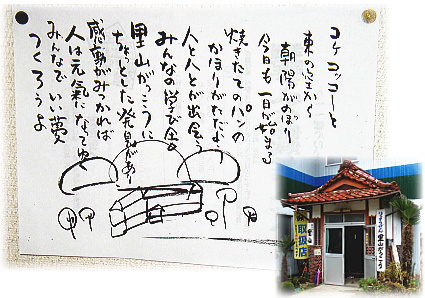 コケコッコーと
東の空から
朝陽がのぼり
今日も一日が始まる
焼きたてのパンの
かほりがただよう
人と人とが出会う
みんなの学び舎
里山がっこうに
ちょっとした発見があり
感動がみつかれば
人は元氣になってゆく
みんなでいい夢
つくろうよ
取扱店
里山がっこう